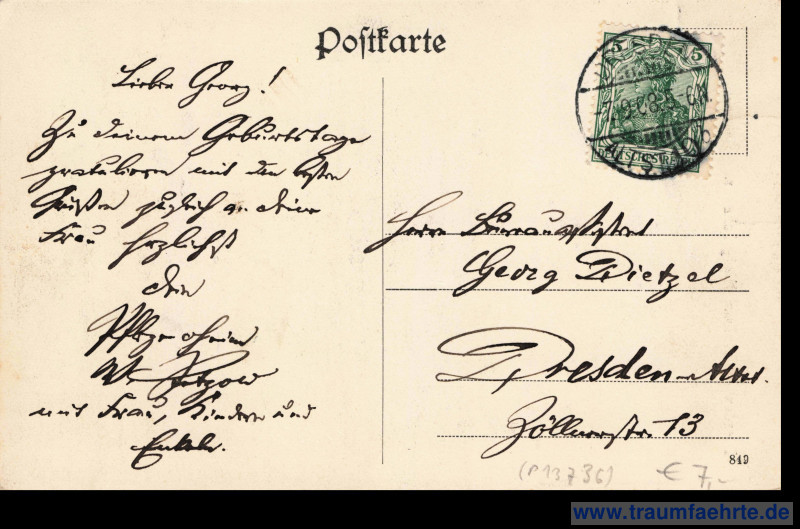 Postkarte
Lieber Georg!
Zu deinem Geburtstage
gratulieren mit den besten
Grüßen zugleich an deine
Frau herzlichst
dein
mit Frau, Kindern und
Enkeln.
5 5
Herrn Büroassistent
Georg Dietzel
Dresden
Zöllnerstr. 13
819
(P13736)
€ 7,-
www.traumfaehrte.de